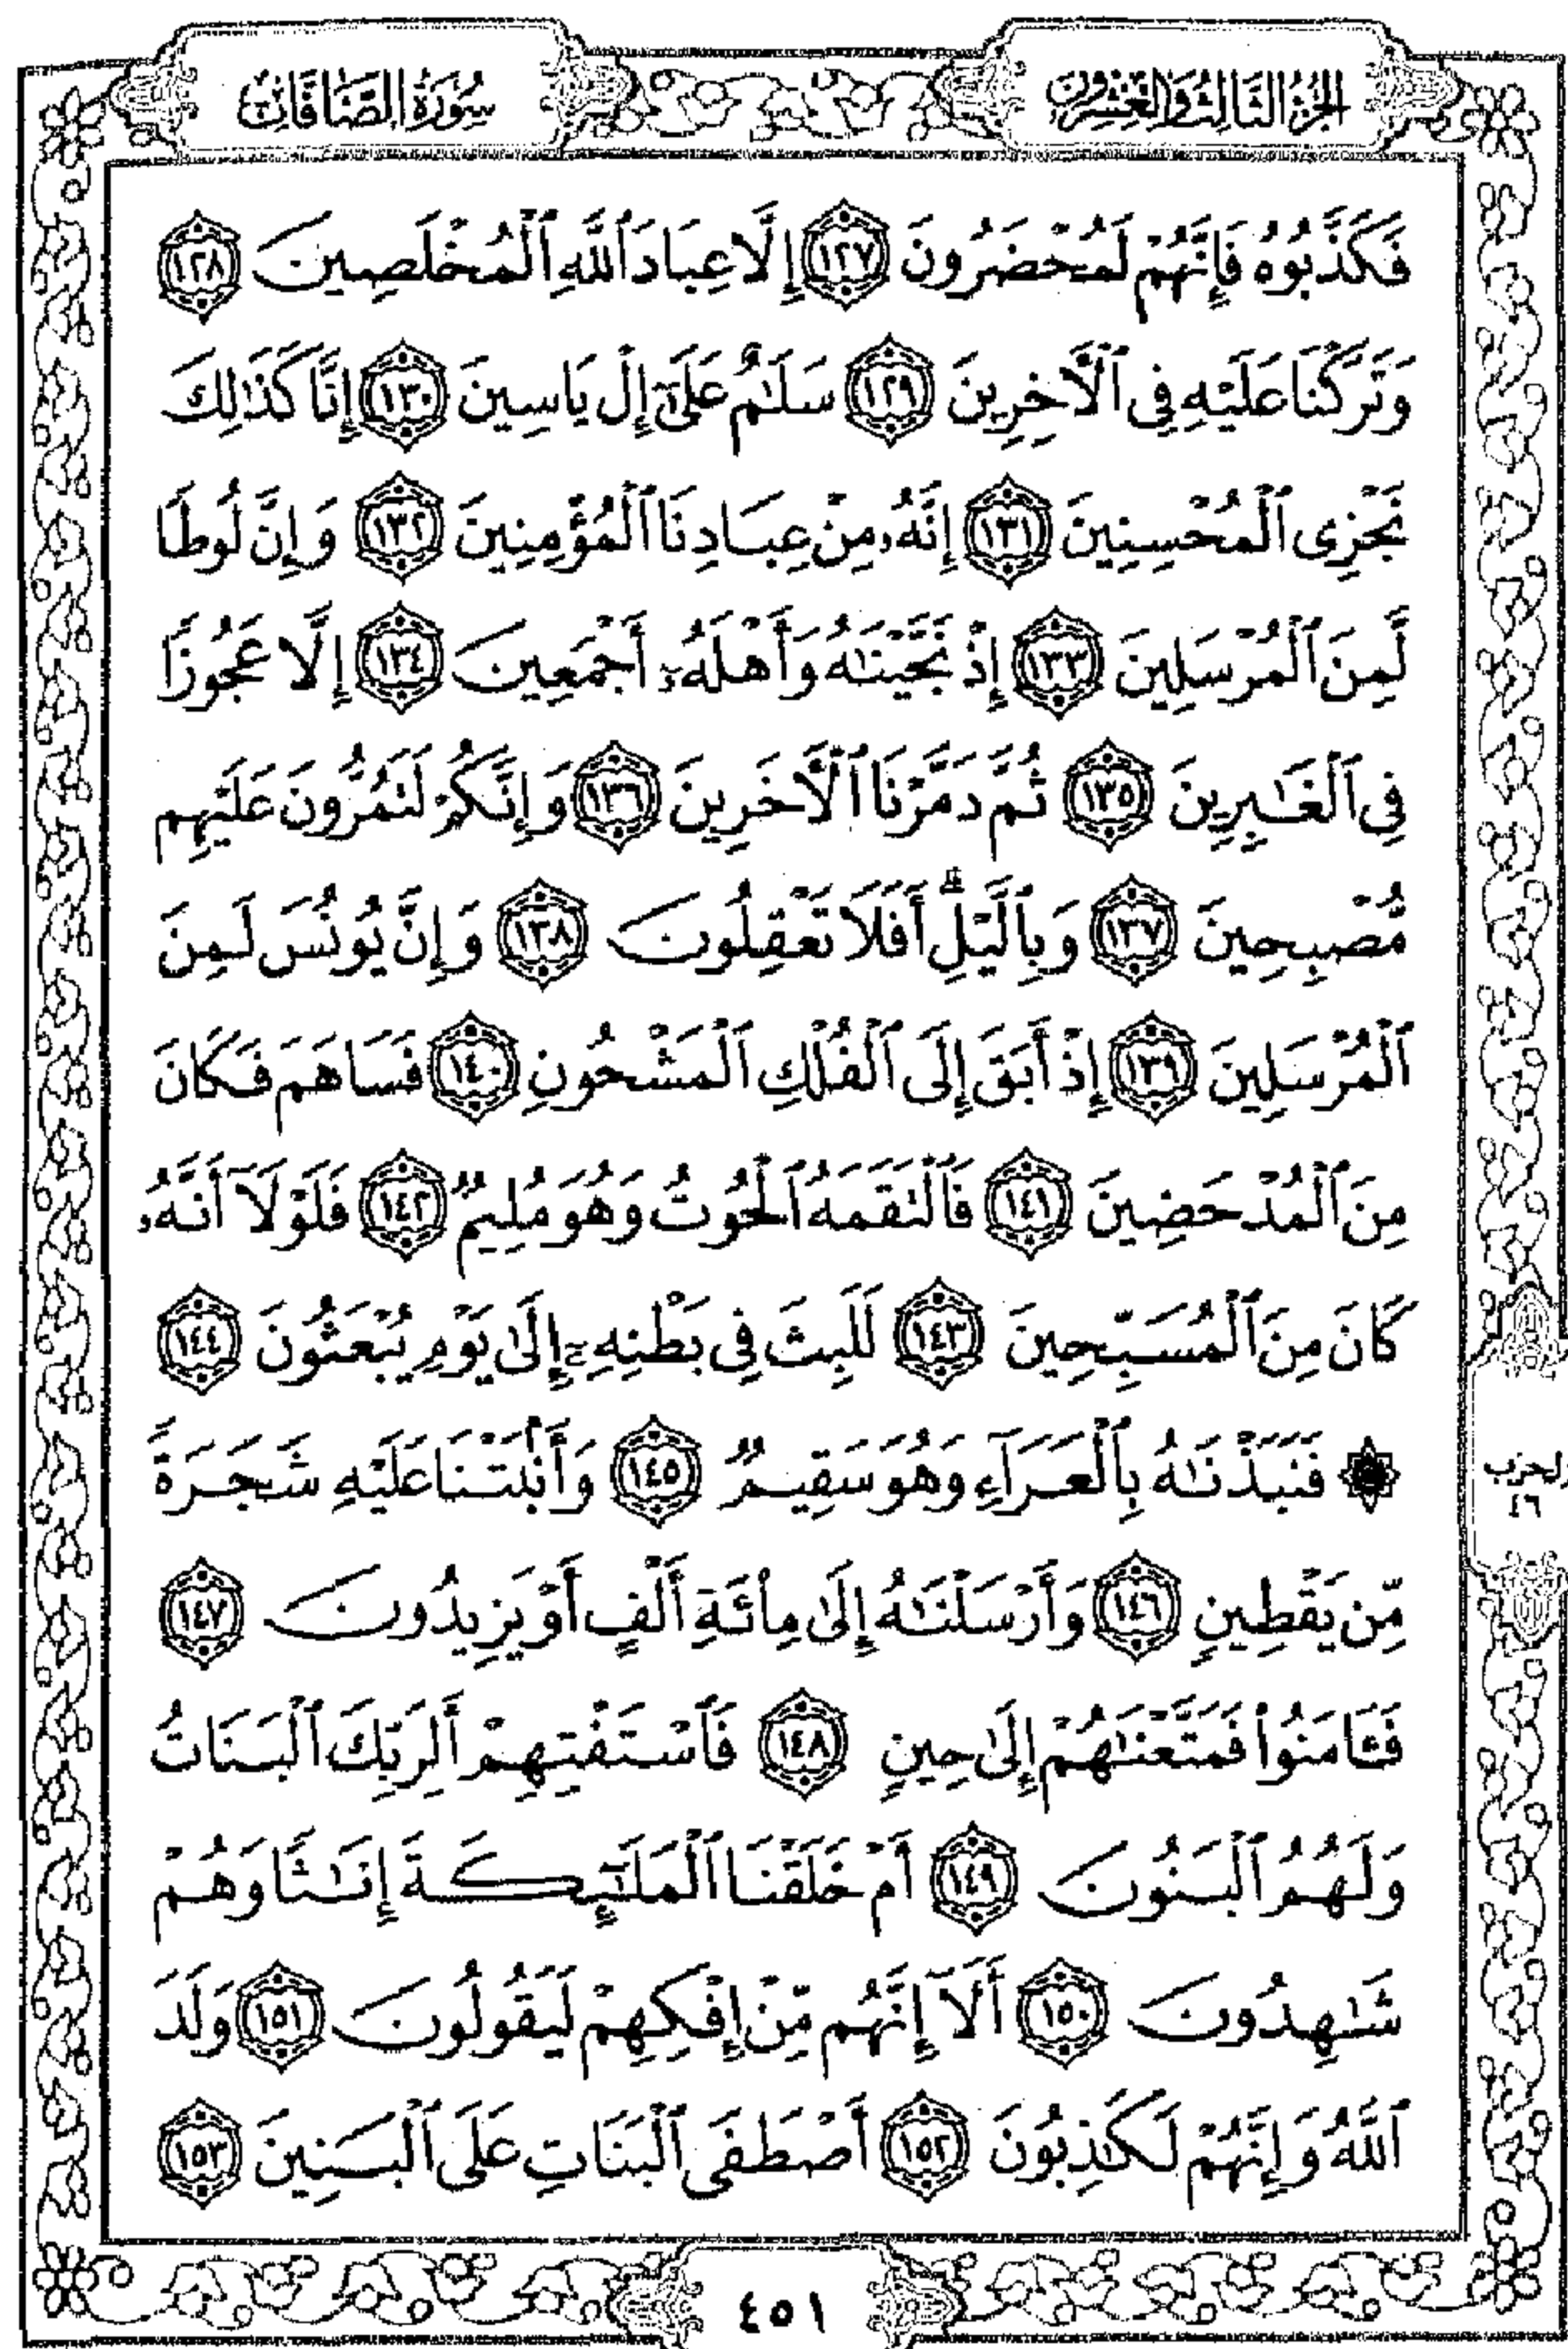 الجزء الثالث والعشرون
سورة الصافات
فَكَذَّبُوهُ فَإِنَّهُمْ لَمُحْضَرُونَ ١٢٧ إِلَّا عِبَادَ ٱللَّهِ ٱلْمُخْلَصِينَ ١٢٨
وَتَرَكْنَا عَلَيْهِ فِي ٱلْأٓخِرِينَ ١٢٩ سَلَٰمٌ عَلَىٰٓ إِلْ يَاسِينَ ١٣٠ إِنَّا كَذَٰلِكَ
نَجْزِى ٱلْمُحْسِنِينَ ١٣١ إِنَّهُۥ مِنْ عِبَادِنَا ٱلْمُؤْمِنِينَ ١٣٢ وَإِنَّ لُوطًا
لَّمِنَ ٱلْمُرْسَلِينَ ١٣٣ إِذْ نَجَّيْنَٰهُ وَأَهْلَهُۥٓ أَجْمَعِينَ ١٣٤ إِلَّا عَجُوزًا
فِى ٱلْغَٰبِرِينَ ١٣٥ ثُمَّ دَمَّرْنَا ٱلْأٓخَرِينَ ١٣٦ وَإِنَّكُمْ لَتَمُرُّونَ عَلَيْهِم
مُّصْبِحِينَ ١٣٧ وَبِٱلَّيْلِ ۗ أَفَلَا تَعْقِلُونَ ١٣٨ وَإِنَّ يُونُسَ لَمِنَ
ٱلْمُرْسَلِينَ ١٣٩ إِذْ أَبَقَ إِلَى ٱلْفُلْكِ ٱلْمَشْحُونِ ١٤٠ فَسَاهَمَ فَكَانَ
مِنَ ٱلْمُدْحَضِينَ ١٤١ فَٱلْتَقَمَهُ ٱلْحُوتُ وَهُوَ مُلِيمٌ ١٤٢ فَلَوْلَآ أَنَّهُۥ
كَانَ مِنَ ٱلْمُسَبِّحِينَ ١٤٣ لَلَبِثَ فِى بَطْنِهِۦٓ إِلَىٰ يَوْمِ يُبْعَثُونَ ١٤٤
۞ فَنَبَذْنَٰهُ بِٱلْعَرَآءِ وَهُوَ سَقِيمٌ ١٤٥ وَأَنۢبَتْنَا عَلَيْهِ شَجَرَةً
مِّن يَقْطِينٍ ١٤٦ وَأَرْسَلْنَٰهُ إِلَىٰ مِا۟ئَةِ أَلْفٍ أَوْ يَزِيدُونَ ١٤٧
فَـَٔامَنُوا۟ فَمَتَّعْنَٰهُمْ إِلَىٰ حِينٍ ١٤٨ فَٱسْتَفْتِهِمْ أَلِرَبِّكَ ٱلْبَنَاتُ
وَلَهُمُ ٱلْبَنُونَ ١٤٩ أَمْ خَلَقْنَا ٱلْمَلَٰٓئِكَةَ إِنَٰثًا وَهُمْ
شَٰهِدُونَ ١٥٠ أَلَآ إِنَّهُم مِّنْ إِفْكِهِمْ لَيَقُولُونَ ١٥١ وَلَدَ
ٱللَّهُ وَإِنَّهُمْ لَكَٰذِبُونَ ١٥٢ أَصْطَفَى ٱلْبَنَاتِ عَلَى ٱلْبَنِينَ ١٥٣
الحزب
٤٦
٤٥١